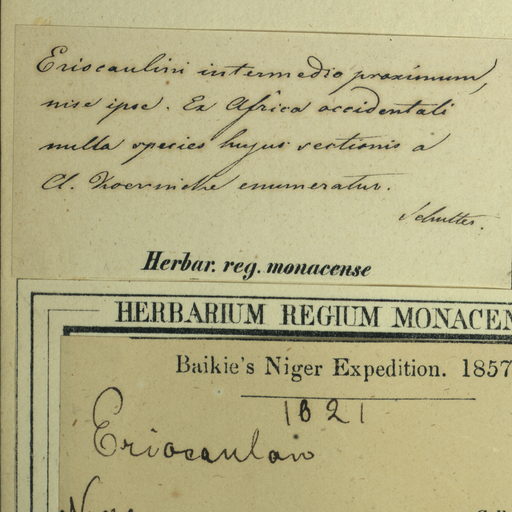 Eriocaulini intermedio proximum,
nise ipse. Ex Africa occidentali
nulla species hujus sectionis a
Cl. Koernicke enumeratur.
Schultes.
Herbar. reg. monacense
HERBARIUM REGIUM MONACEN
Baikie's Niger Expedition. 1857
1821
Eriocaulon